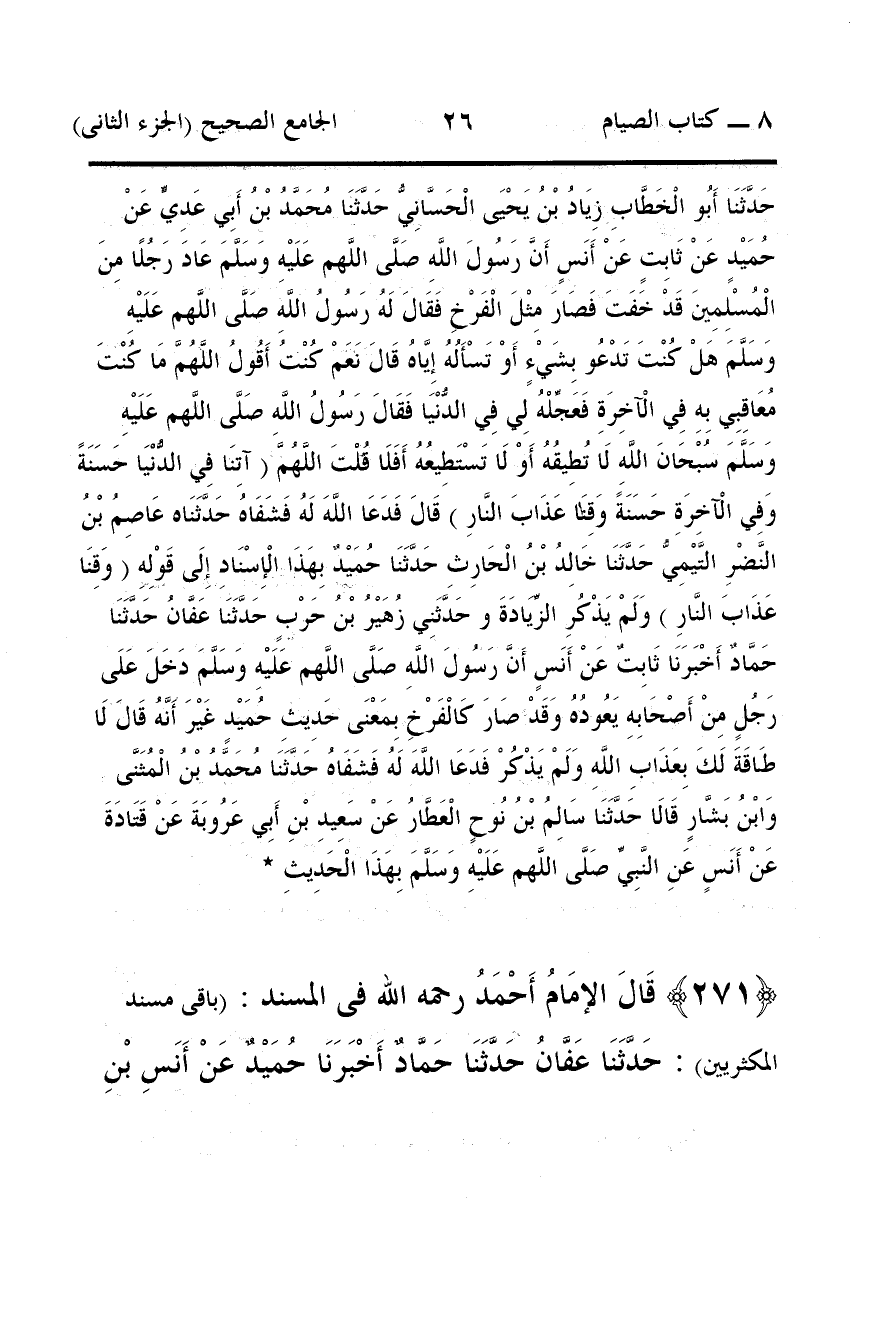 ٨ ــ كتاب الصيام ٢٦ الجامع الصحيح (الجزء الثانى)
حَدَّثَنَا أَبُو الْخَطَّابِ زِيَادُ بْنُ يَحْيَى الْحَسَّانِيُّ حَدَّثَنَا مُحَمَّدُ بْنُ أَبِي عَدِيٍّ عَنْ
حُمَيْدٍ عَنْ ثَابِتٍ عَنْ أَنَسٍ أَنَّ رَسُولَ اللَّهِ صَلَّى اللهم عَلَيْهِ وَسَلَّمَ عَادَ رَجُلًا مِنَ
الْمُسْلِمِينَ قَدْ خَفَتَ فَصَارَ مِثْلَ الْفَرْخِ فَقَالَ لَهُ رَسُولُ اللَّهِ صَلَّى اللهم عَلَيْهِ
وَسَلَّمَ هَلْ كُنْتَ تَدْعُو بِشَيْءٍ أَوْ تَسْأَلُهُ إِيَّاهُ قَالَ نَعَمْ كُنْتُ أَقُولُ اللَّهُمَّ مَا كُنْتَ
مُعَاقِبِي بِهِ فِي الْآخِرَةِ فَعَجِّلْهُ لِي فِي الدُّنْيَا فَقَالَ رَسُولُ اللَّهِ صَلَّى اللهم عَلَيْهِ
وَسَلَّمَ سُبْحَانَ اللَّهِ لَا تُطِيقُهُ أَوْ لَا تَسْتَطِيعُهُ أَفَلَا قُلْتَ اللَّهُمَّ ( آتِنَا فِي الدُّنْيَا حَسَنَةً
وَفِي الْآخِرَةِ حَسَنَةً وَقِنَا عَذَابَ النَّارِ ) قَالَ فَدَعَا اللَّهَ لَهُ فَشَفَاهُ حَدَّثَنَاه عَاصِمُ بْنُ
النَّضْرِ التَّيْمِيُّ حَدَّثَنَا خَالِدُ بْنُ الْحَارِثِ حَدَّثَنَا حُمَيْدٌ بِهَذَا الْإِسْنَادِ إِلَى قَوْلِهِ ( وَقِنَا
عَذَابَ النَّارِ ) وَلَمْ يَذْكُرِ الزِّيَادَةَ و حَدَّثَنِي زُهَيْرُ بْنُ حَرْبٍ حَدَّثَنَا عَفَّانُ حَدَّثَنَا
حَمَّادٌ أَخْبَرَنَا ثَابِتٌ عَنْ أَنَسٍ أَنَّ رَسُولَ اللَّهِ صَلَّى اللهم عَلَيْهِ وَسَلَّمَ دَخَلَ عَلَى
رَجُلٍ مِنْ أَصْحَابِهِ يَعُودُهُ وَقَدْ صَارَ كَالْفَرْخِ بِمَعْنَى حَدِيثِ حُمَيْدٍ غَيْرَ أَنَّهُ قَالَ لَا
طَاقَةَ لَكَ بِعَذَابِ اللَّهِ وَلَمْ يَذْكُرْ فَدَعَا اللَّهَ لَهُ فَشَفَاهُ حَدَّثَنَا مُحَمَّدُ بْنُ الْمُثَنَّى
وَابْنُ بَشَّارٍ قَالَا حَدَّثَنَا سَالِمُ بْنُ نُوحٍ الْعَطَّارُ عَنْ سَعِيدِ بْنِ أَبِي عَرُوبَةَ عَنْ قَتَادَةَ
عَنْ أَنَسٍ عَنِ النَّبِيِّ صَلَّى اللهم عَلَيْهِ وَسَلَّمَ بِهَذَا الْحَدِيثِ *
﴿٢٧١﴾ قَالَ الإِمَامُ أَحْمَدُ رحمه الله فى المسند : (باقى مسند
المكثريين) : حَدَّثَنَا عَفَّانُ حَدَّثَنَا حَمَّادٌ أَخْبَرَنَا حُمَيْدٌ عَنْ أَنَسِ بْنِ